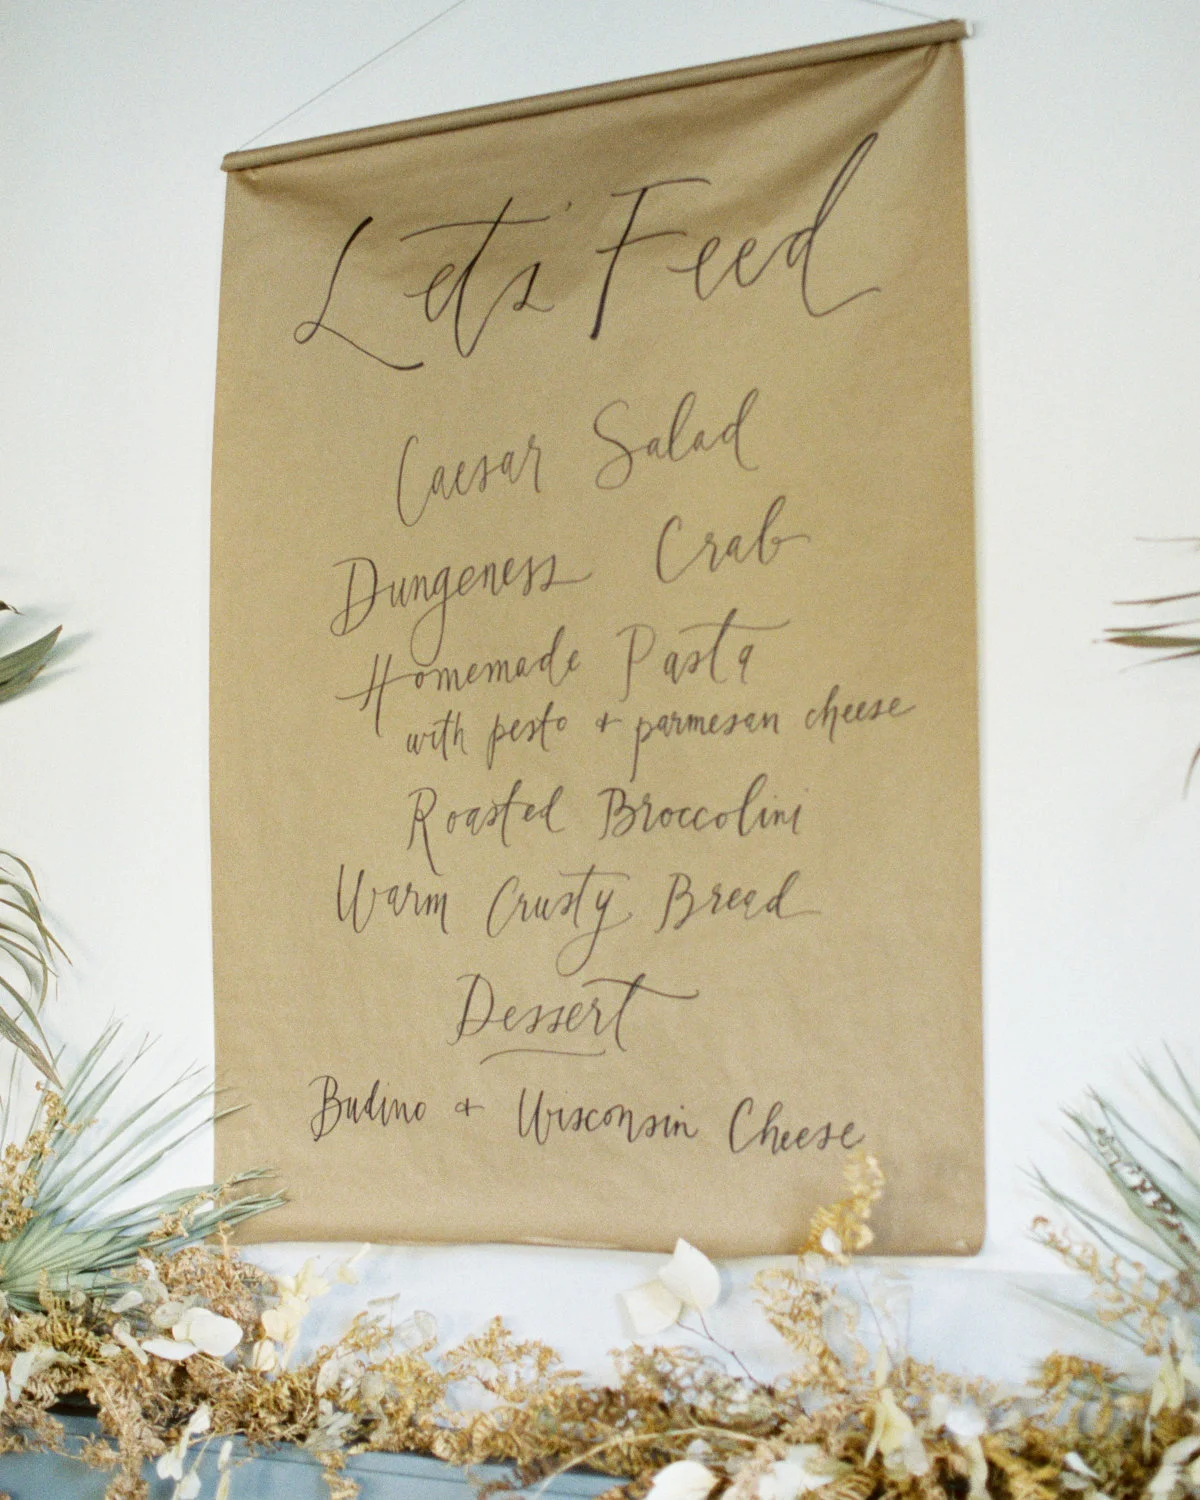 Let's Feed
Caesar Salad
Dungeness Crab
Homemade Pasta
with pesto + parmesan cheese
Roasted Broccolini
Warm Crusty Bread
Dessert
Budino + Wisconsin Cheese